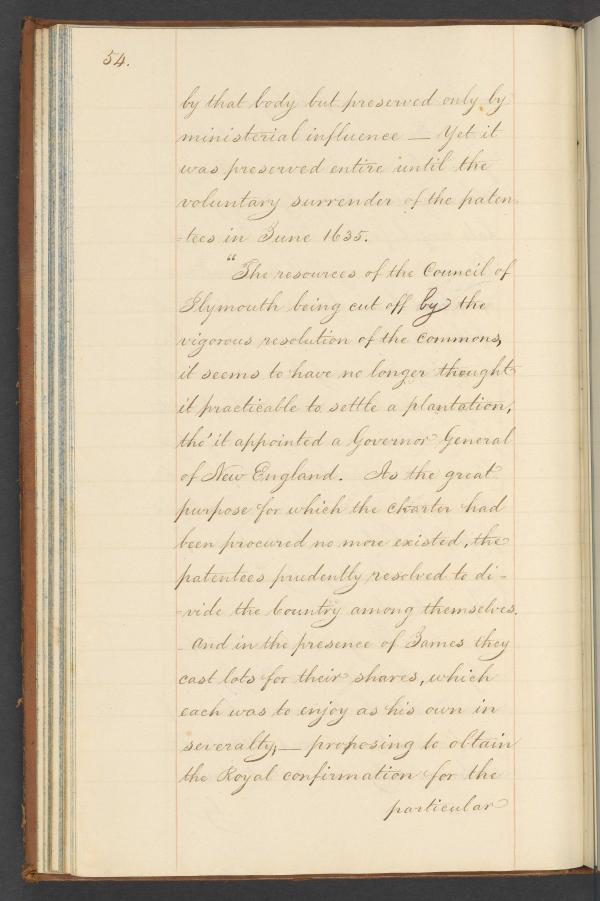 54.
by that body but preserved only by
ministerial influence — Yet it
was preserved entire until the
voluntary surrender of the paten
=tees in June 1635.
"The resources of the Council of
Plymouth being cut off by the
vigorous resolution of the commons,
it seems to have no longer thought
it practicable to settle a plantation,
tho' it appointed a Governor General
of New England. As the great
purpose for which the charter had
been procured no more existed, the
patentees prudently resolved to di=
=vide the Country among themselves.
And in the presence of James they
cast lots for their shares, which
each was to enjoy as his own in
severalty; — proposing to obtain
the Royal confirmation for the
particular